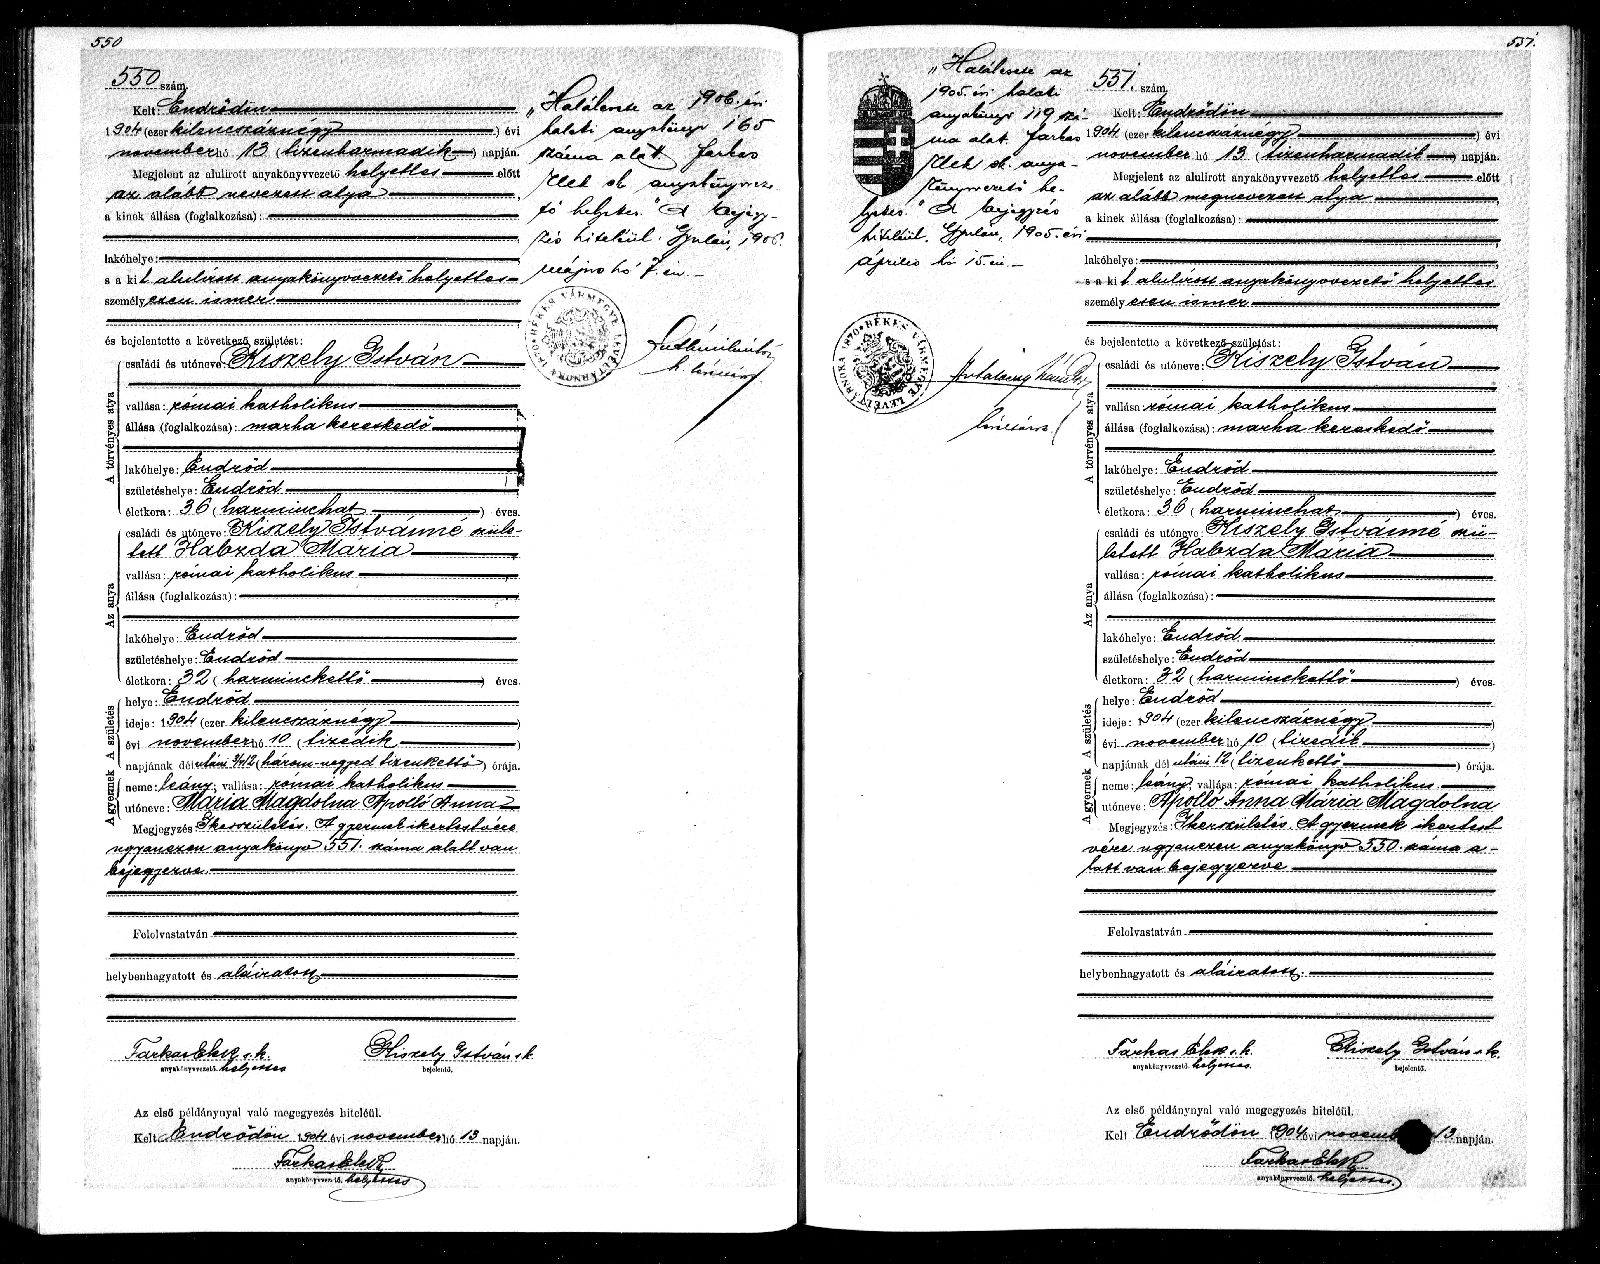 550
550 szám.
Kelt: Endrődön
1904 (ezer kilencszáznégy) évi
november hó 13 (tizenharmadik) napján.
Megjelent az alulirott anyakönyvvezető helyettes előtt
az alább nevezett atya
a kinek állása (foglalkozása):
lakóhelye:
s a kit alulírott anyakönyvvezető helyettes
személyesen ismer
és bejelentette a következő születést:
A törvényes atya
családi és utóneve: Kiszely István
vallása: római katholikus
állása (foglalkozása): marha kereskedő
lakóhelye: Endrőd
születéshelye: Endrőd
életkora: 36 (harminchat) éves.
Az anya
családi és utóneve: Kiszely Istvánné szüle-
tett Habzda Mária
vallása: római katholikus
állása (foglalkozása):
lakóhelye: Endrőd
születéshelye: Endrőd
életkora: 32 (harminckettő) éves.
A születés
helye: Endrőd
ideje: 1904 (ezer kilencszáznégy)
évi november hó 10 (tizedik)
napjának dél utáni 3/4 12 (három negyed tizenkettő) órája.
A gyermek
neme: leány; vallása: római katholikus
utóneve: Mária Magdolna Apolló Anna
Megjegyzés: Ikerszületés. A gyermek ikertestvére
ugyanezen anyakönyv 551. száma alatt van
bejegyezve.
Felolvastatván
helybenhagyatott és aláiratott
Farkas Elek s. k.
anyakönyvvezető. helyettes
Kiszely István s. k.
bejelentő.
Az első példánynyal való megegyezés hiteléül.
Kelt Endrődön 1904 évi november hó 13 napján.
Farkas Elek
anyakönyvvezető. helyettes
„Halálesete az 1906. évi
halotti anyakönyv 165
száma alatt. Farkas
Elek sk. anyakönyvveze-
tő helyettes." A bejegy-
zés hiteléül. Gyulán, 1906.
május hó 7-én.
BÉKÉS VÁRMEGYE LEVÉLTÁRNOKA 1870
551.
551. szám.
Kelt: Endrődön
1904 (ezer kilencszáznégy) évi
november hó 13 (tizenharmadik) napján.
Megjelent az alulirott anyakönyvvezető helyettes előtt
az alább megnevezett atya
a kinek állása (foglalkozása):
lakóhelye:
s a kit alulírott anyakönyvvezető helyettes
személyesen ismer
és bejelentette a következő születést:
A törvényes atya
családi és utóneve: Kiszely István
vallása: római katholikus
állása (foglalkozása): marha kereskedő
lakóhelye: Endrőd
születéshelye: Endrőd
életkora: 36 (harminchat) éves.
Az anya
családi és utóneve: Kiszely Istvánné szü-
letett Habzda Mária
vallása: római katholikus
állása (foglalkozása):
lakóhelye: Endrőd
születéshelye: Endrőd
életkora: 32 (harminckettő) éves.
A születés
helye: Endrőd
ideje: 1904 (ezer kilencszáznégy)
évi november hó 10 (tizedik)
napjának dél utáni 12 (tizenkettő) órája.
A gyermek
neme: leány; vallása: római katholikus
utóneve: Apolló Anna Mária Magdolna
Megjegyzés: Ikerszületés. A gyermek ikertest
vére ugyanezen anyakönyv 550. száma a-
latt van bejegyezve
Felolvastatván
helybenhagyatott és aláiratott.
Farkas Elek s. k.
anyakönyvvezető. helyettes.
Kiszely István s. k.
bejelentő.
Az első példánynyal való megegyezés hiteléül.
Kelt Endrődön 1904 évi novemb 13 napján.
Farkas Elek
anyakönyvvezető. helyettes.
„Halálesete az
1905. évi halotti
anyakönyv 119 szá-
ma alatt. Farkas
Elek sk. anya-
könyvvezető he-
lyettes." A bejegyzés
hiteléül. Gyulán, 1905. évi
április hó 15-én
BÉKÉS VÁRMEGYE LEVÉLTÁRNOKA 1870